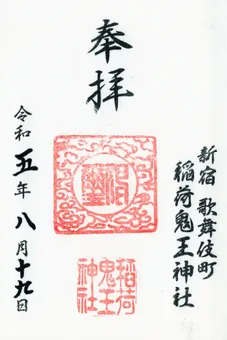 奉拝
新宿 歌舞伎町
稲荷鬼王神社
令和五年八月十九日
稲荷
鬼王
神社